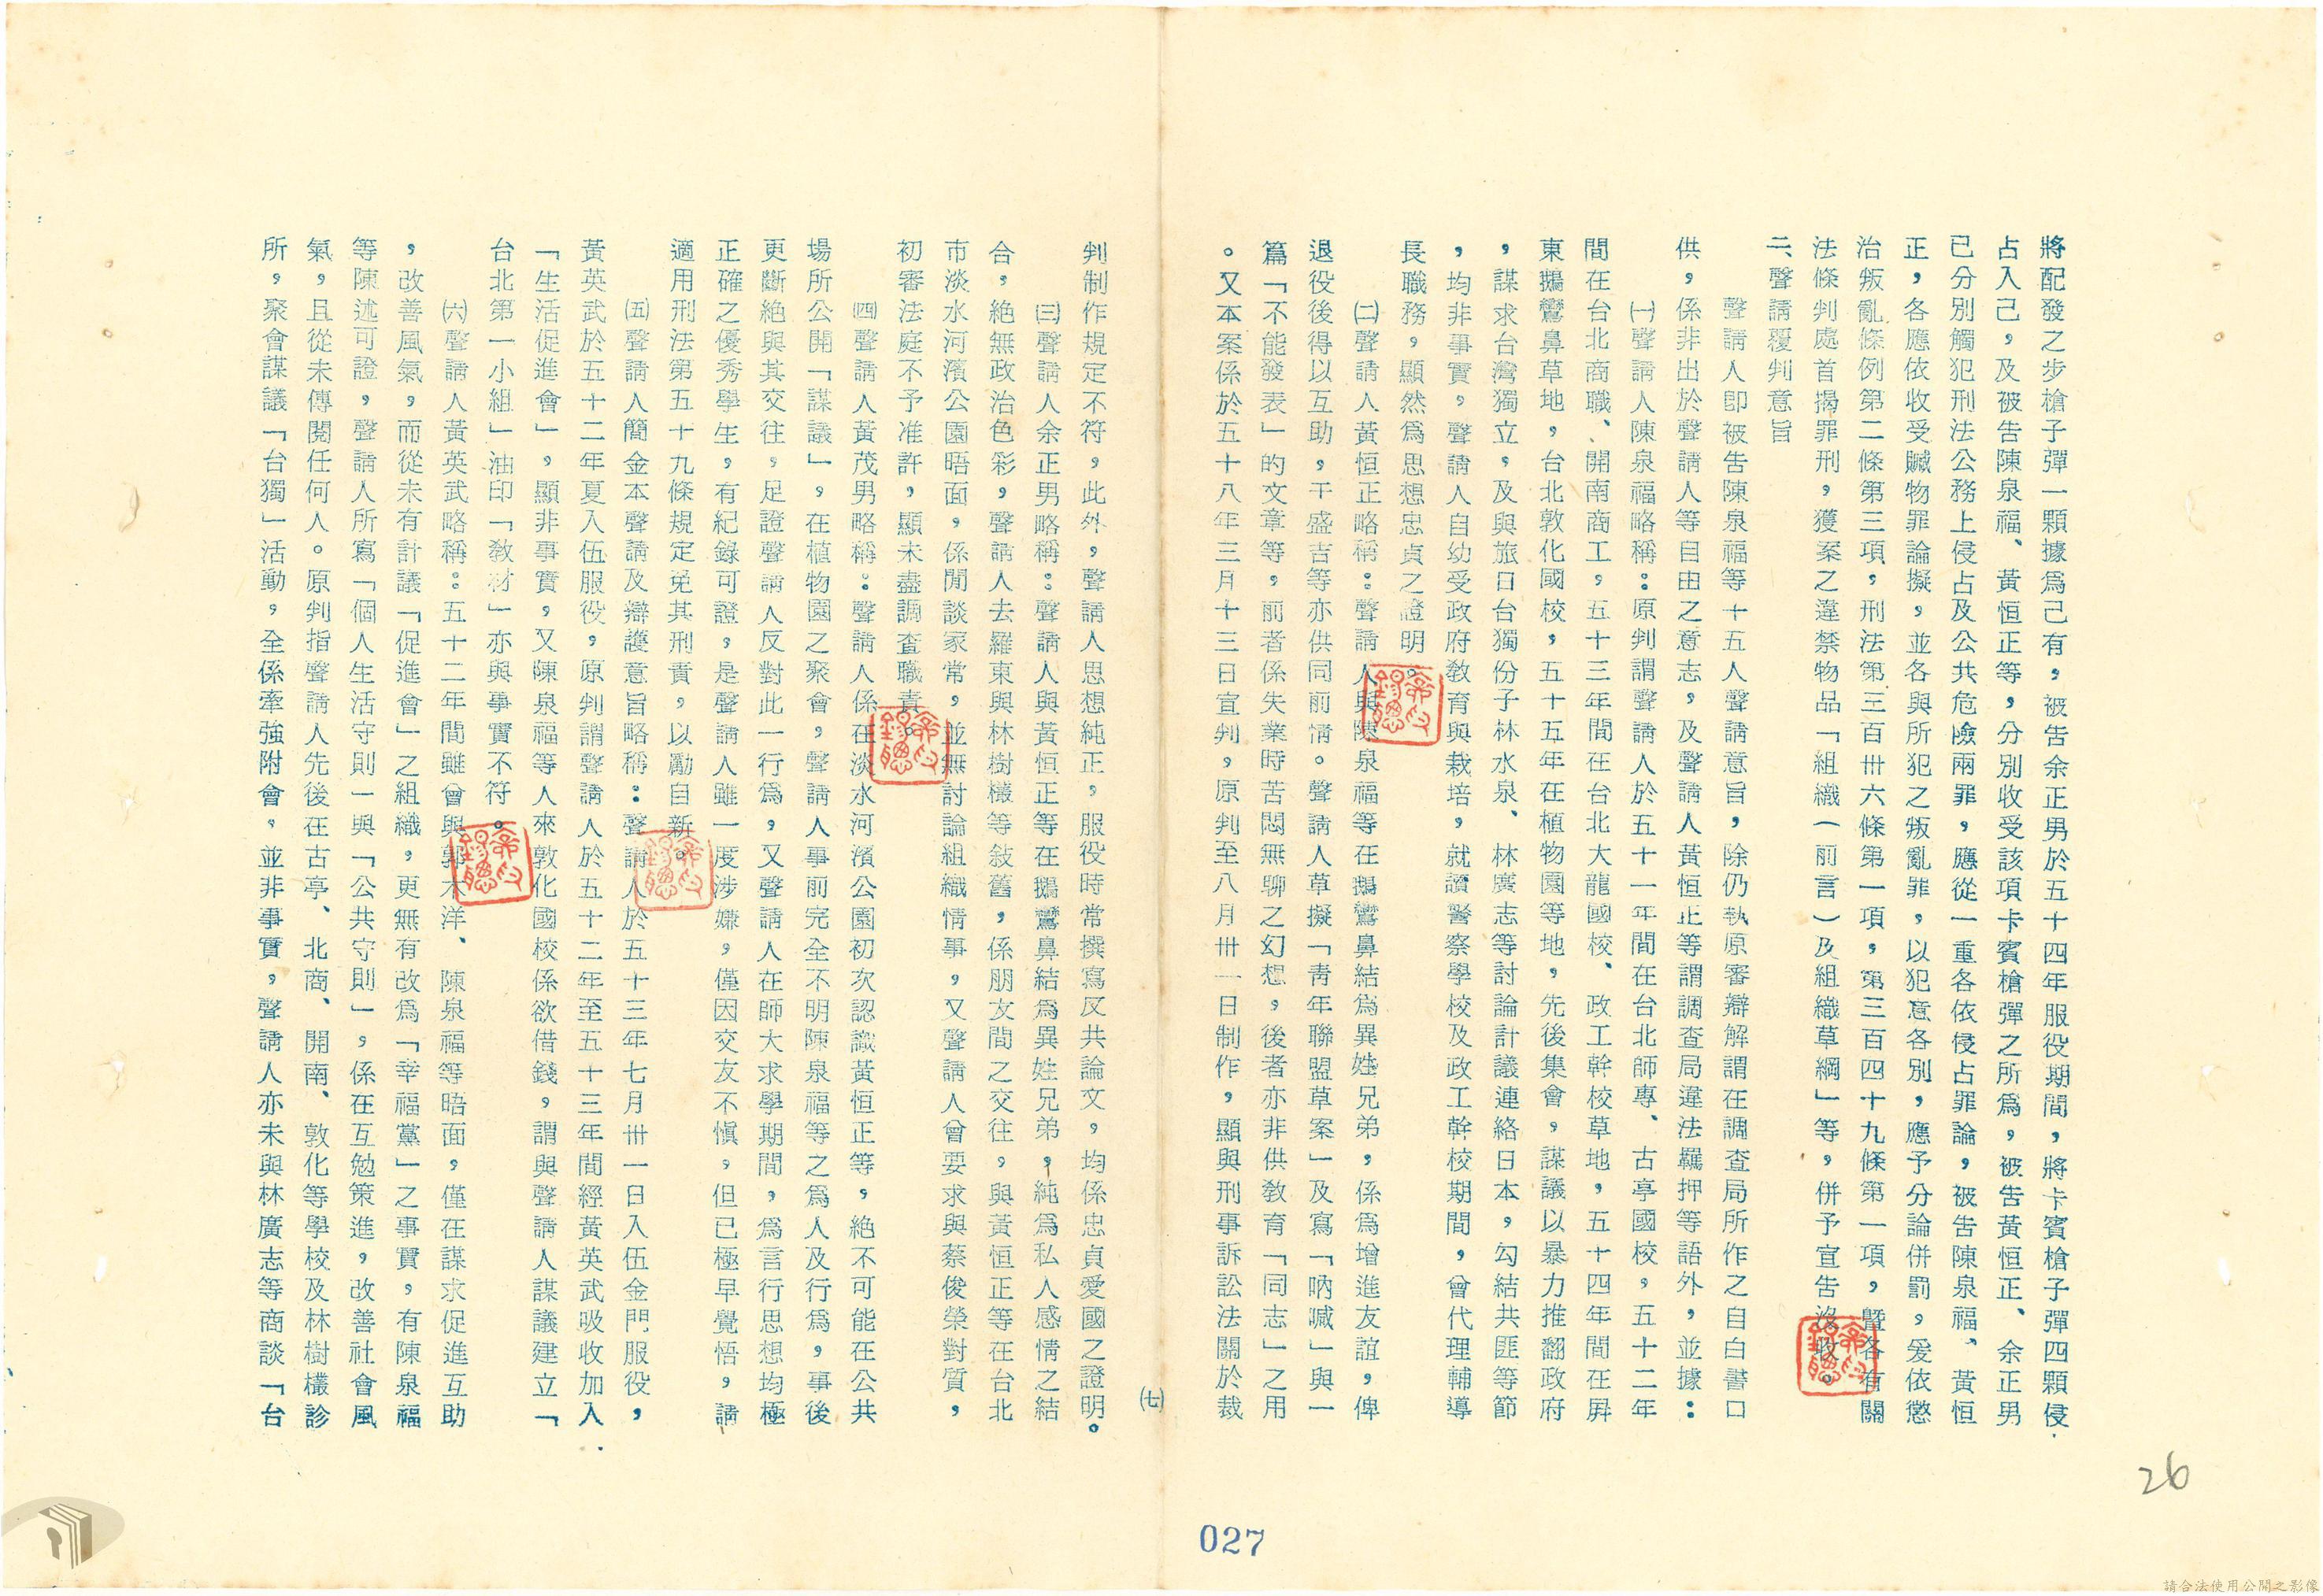 將配發之步槍子彈一顆據為己有，被告余正男於五十四年服役期間，將卡賓槍子彈四顆侵
占入己，及被告陳泉福、黃恒正等，分別收受該項卡賓槍彈之所為，被告黃恒正、余正男
已分別觸犯刑法公務上侵占及公共危險兩罪，應從一重各依侵占罪論，被告陳泉福、黃恒
正，各應依收受贓物罪論擬，並各與所犯之叛亂罪，以犯意各別，應予分論併罰，爰依懲
治叛亂條例第二條第三項，刑法第三百卅六條第一項，第三百四十九條第一項，暨各有關
法條判處首揭罪刑，獲案之違禁物品「組織（前言）及組織草綱」等，併予宣告沒收。
二、聲請覆判意旨
聲請人即被告陳泉福等十五人聲請意旨，除仍執原審辯解謂在調查局所作之自白書口
供，係非出於聲請人等自由之意志，及聲請人黃恒正等謂調查局違法羈押等語外，並據：
㈠聲請人陳泉福略稱：原判謂聲請人於五十一年間在台北師專、古亭國校，五十二年
間在台北商職、開南商工，五十三年間在台北大龍國校、政工幹校草地，五十四年間在屏
東鵝鸞鼻草地，台北敦化國校，五十五年在植物園等地，先後集會，謀議以暴力推翻政府
，謀求台灣獨立，及與旅日台獨份子林水泉、林廣志等討論計議連絡日本，勾結共匪等節
，均非事實，聲請人自幼受政府敎育與栽培，就讀警察學校及政工幹校期間，曾代理輔導
長職務，顯然為思想忠貞之證明。
㈡聲請人黃恒正略稱：聲請人與陳泉福等在鵝鸞鼻結為異姓兄弟，係為增進友誼，俾
退役後得以互助，干盛吉等亦供同前情。聲請人草擬「靑年聯盟草案」及寫「吶喊」與一
篇「不能發表」的文章等，前者係失業時苦悶無聊之幻想，後者亦非供敎育「同志」之用
。又本案係於五十八年三月十三日宣判，原判至八月卅一日制作，顯與刑事訴訟法關於裁
㈦
判制作規定不符，此外，聲請人思想純正，服役時常撰寫反共論文，均係忠貞愛國之證明。
㈢聲請人余正男略稱：聲請人與黃恒正等在鵝鸞鼻結為異姓兄弟，純為私人感情之結
合，絕無政治色彩，聲請人去羅東與林樹欉等敍舊，係朋友間之交往，與黃恒正等在台北
市淡水河濱公園晤面，係閒談家常，並無討論組織情事，又聲請人曾要求與蔡俊榮對質，
初審法庭不予准許，顯未盡調查職責。
㈣聲請人黃茂男略稱：聲請人係在淡水河濱公園初次認識黃恒正等，絕不可能在公共
場所公開「謀議」，在植物園之聚會，聲請人事前完全不明陳泉福等之為人及行為，事後
更斷絕與其交往，足證聲請人反對此一行為，又聲請人在師大求學期間，為言行思想均極
正確之優秀學生，有紀錄可證，是聲請人雖一度涉嫌，僅因交友不愼，但已極早覺悟，請
適用刑法第五十九條規定免其刑責，以勵自新。
㈤聲請人簡金本聲請及辯護意旨略稱：聲請人於五十三年七月卅一日入伍金門服役，
黃英武於五十二年夏入伍服役，原判謂聲請人於五十二年至五十三年間經黃英武吸收加入
「生活促進會」，顯非事實，又陳泉福等人來敦化國校係欲借錢，謂與聲請人謀議建立「
台北第一小組」油印「敎材」亦與事實不符。
㈥聲請人黃英武略稱：五十二年間雖曾與郭木洋、陳泉福等晤面，僅在謀求促進互助
，改善風氣，而從未有計議「促進會」之組織，更無有改為「幸福黨」之事實，有陳泉福
等陳述可證，聲請人所寫「個人生活守則」與「公共守則」，係在互勉策進，改善社會風
氣，且從未傳閱任何人。原判指聲請人先後在古亭、北商、開南、敦化等學校及林樹欉診
所，聚會謀議「台獨」活動，全係牽強附會，並非事實，聲請人亦未與林廣志等商談「台
26
027
請合法使用公開之影像